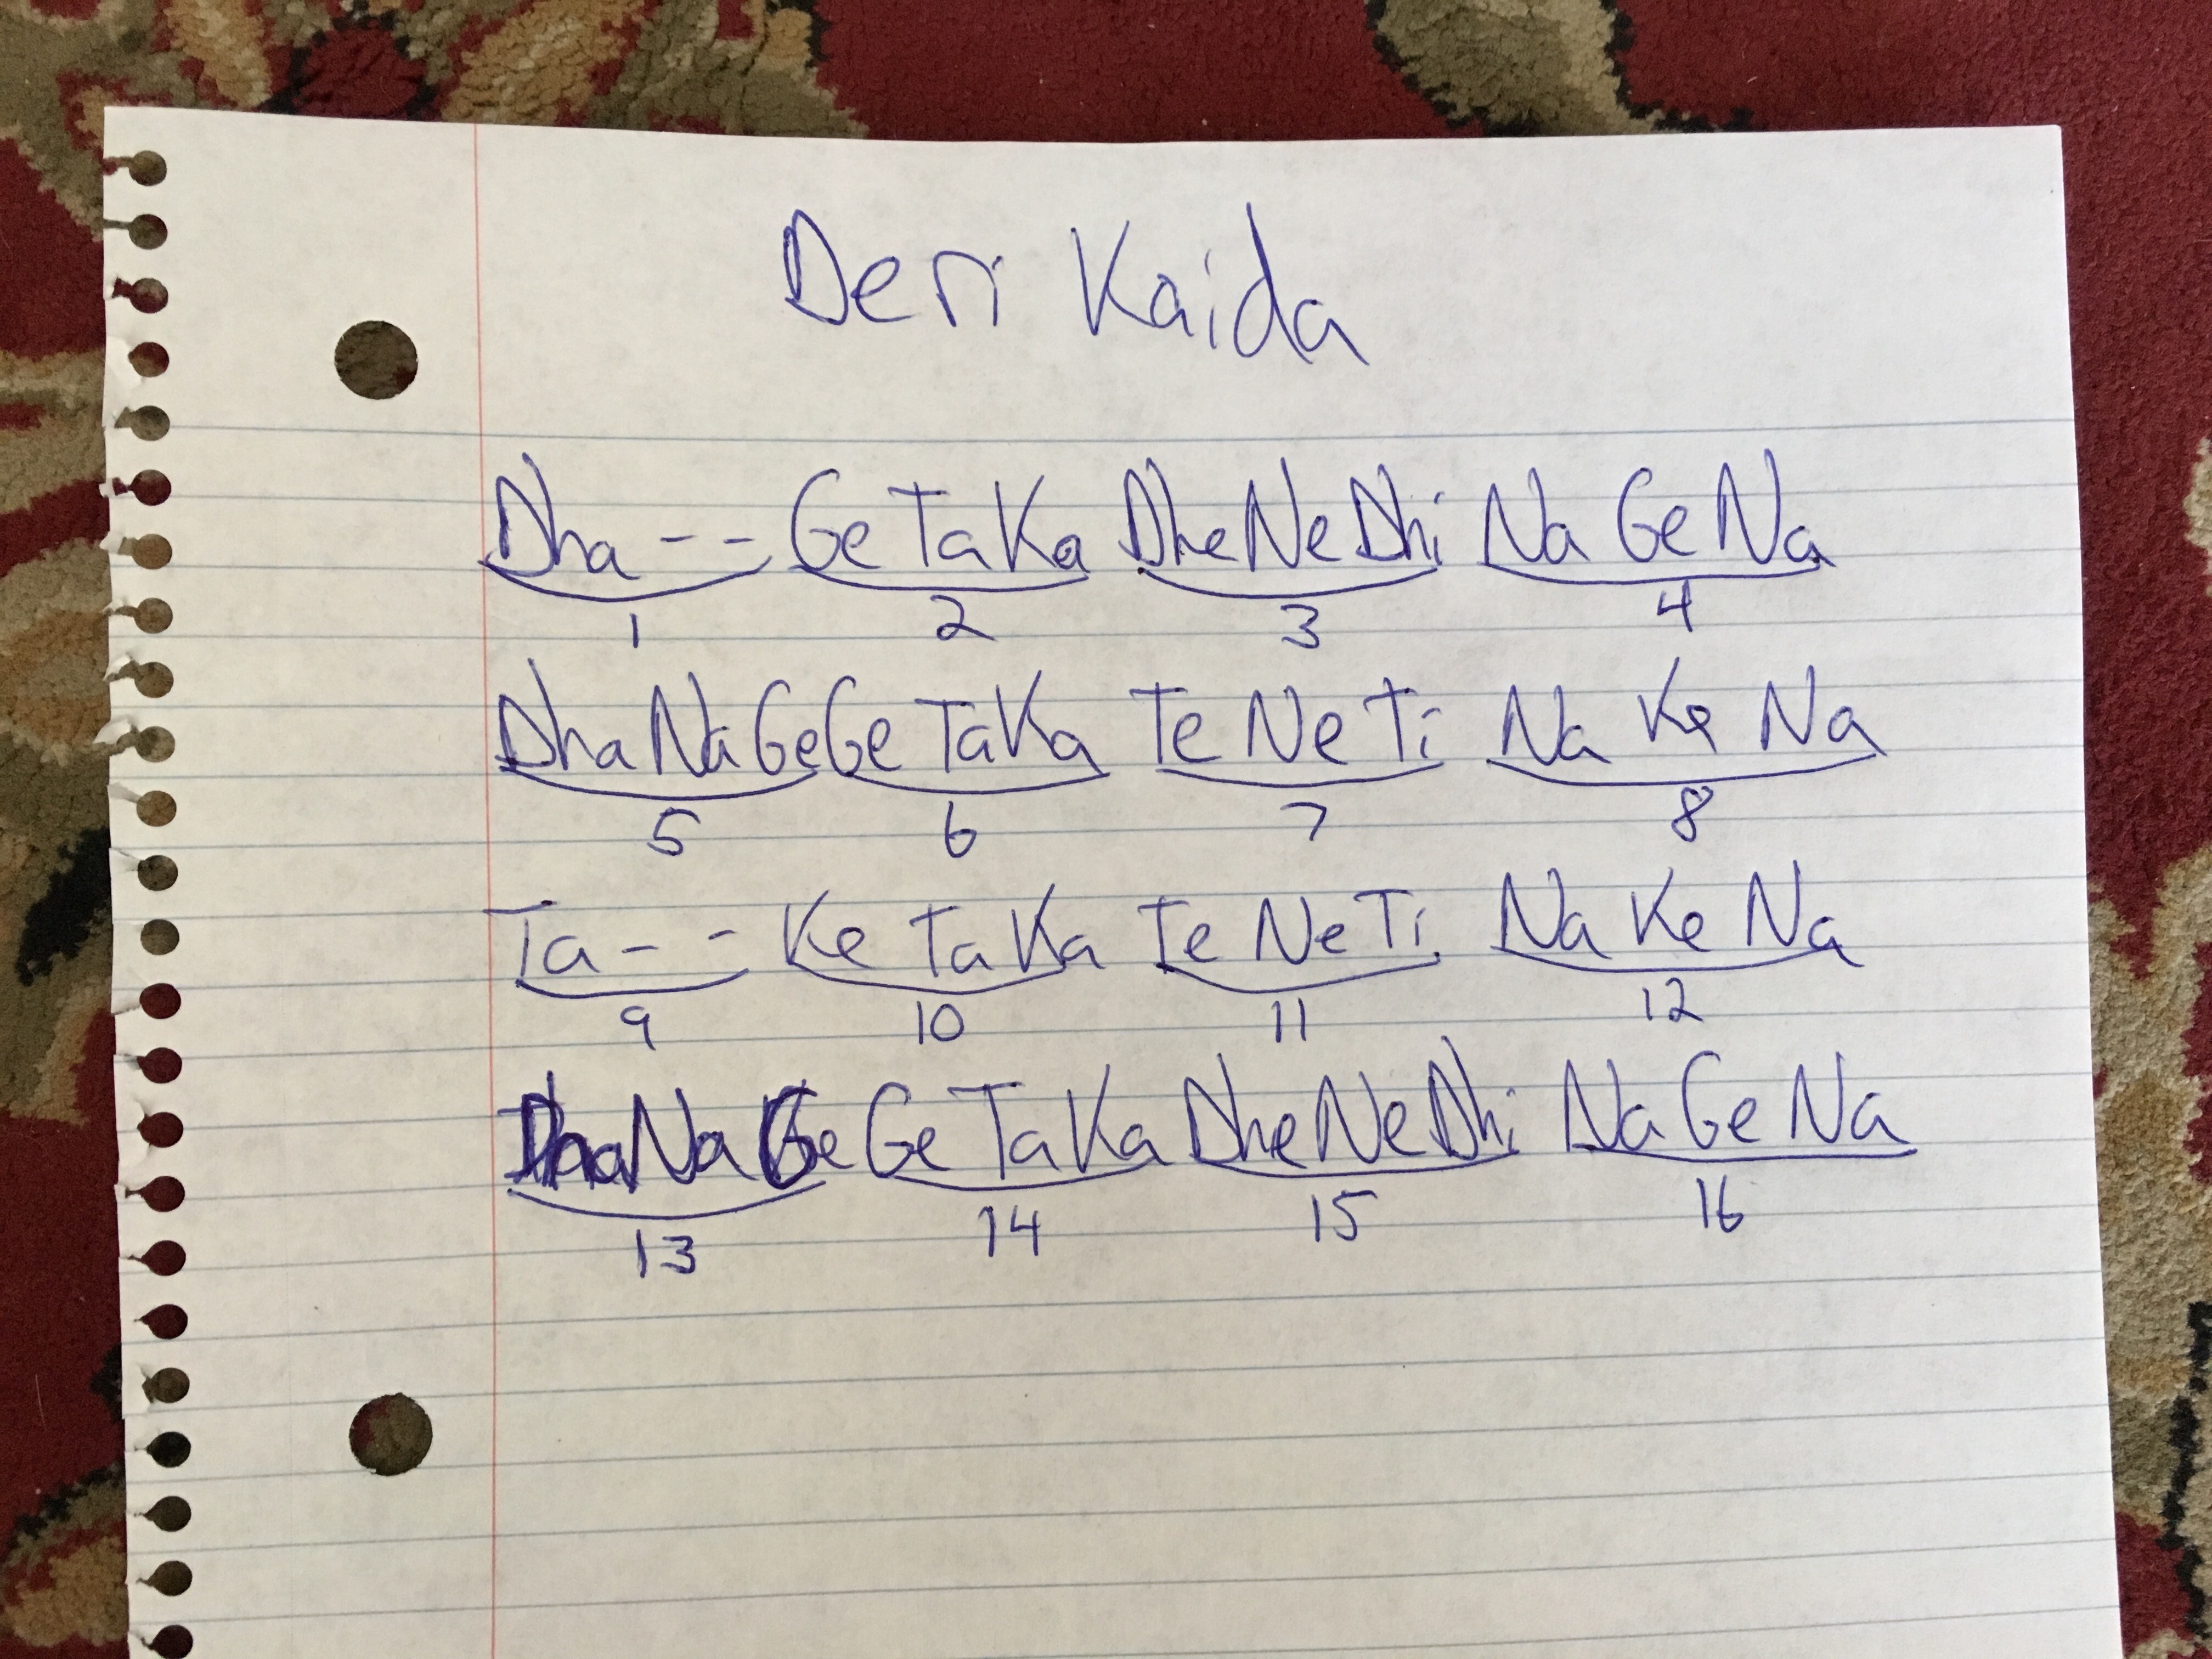 Deri Kaida
Dha - - Ge Ta Ka Dhe Ne Dhi Na Ge Na
1 2 3 4
Dha Na Ge Ge Ta Ka Te Ne Ti Na Ke Na
5 6 7 8
Ta - - Ke Ta Ka Te Ne Ti Na Ke Na
9 10 11 12
Dha Na Ge Ge Ta Ka Dhe Ne Dhi Na Ge Na
13 14 15 16